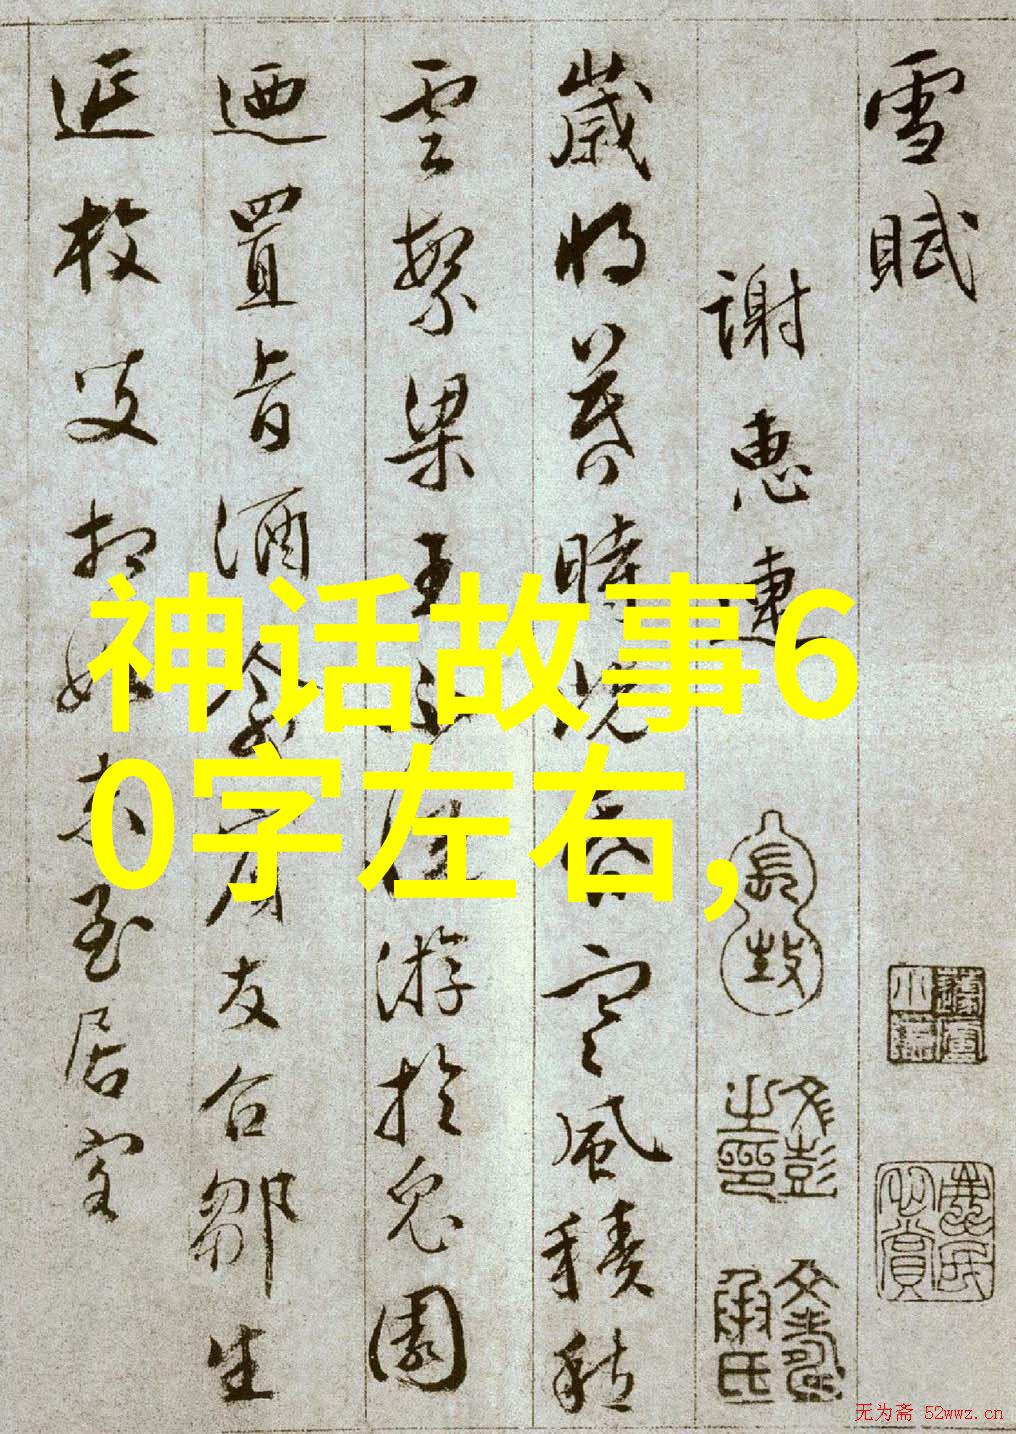 雪賦
謝惠連
歲將暮時既昏寒風積愁
雲繁梁王不悅游於兔園
迺置旨酒命賓友召鄒生
延枚叟相如末至居客
神话故事6
0字左右,
文彭之印
文壽承氏
无为斋 52wwz.cn